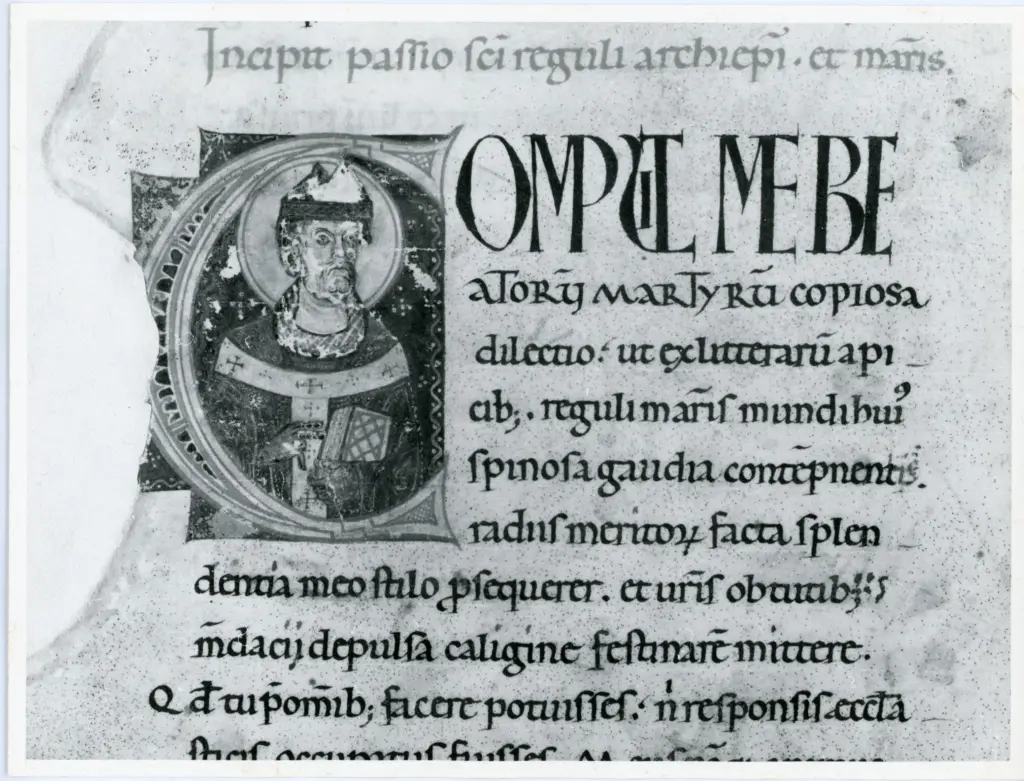 Incipit passio sc̄i reguli archiepī. et mar̄is.
COMPULIT ME BE
ATORŪ MARTYRŪ copiosa
dilectio. ut ex litterarū api
cib; . reguli mar̄is mundi huiꝰ
spinosa gaudia contēpnentis.
radiis meritoꝝ facta splen
dentia meo stilo ꝓsequerer. et ur̄is obtutib;
m̄dacij depulsa caligine festinarē mittere.
Qđ tu p̄ om̄ib; facere potuisses. n̄ responsis eccl̄a
sticis occupatus fuisses.